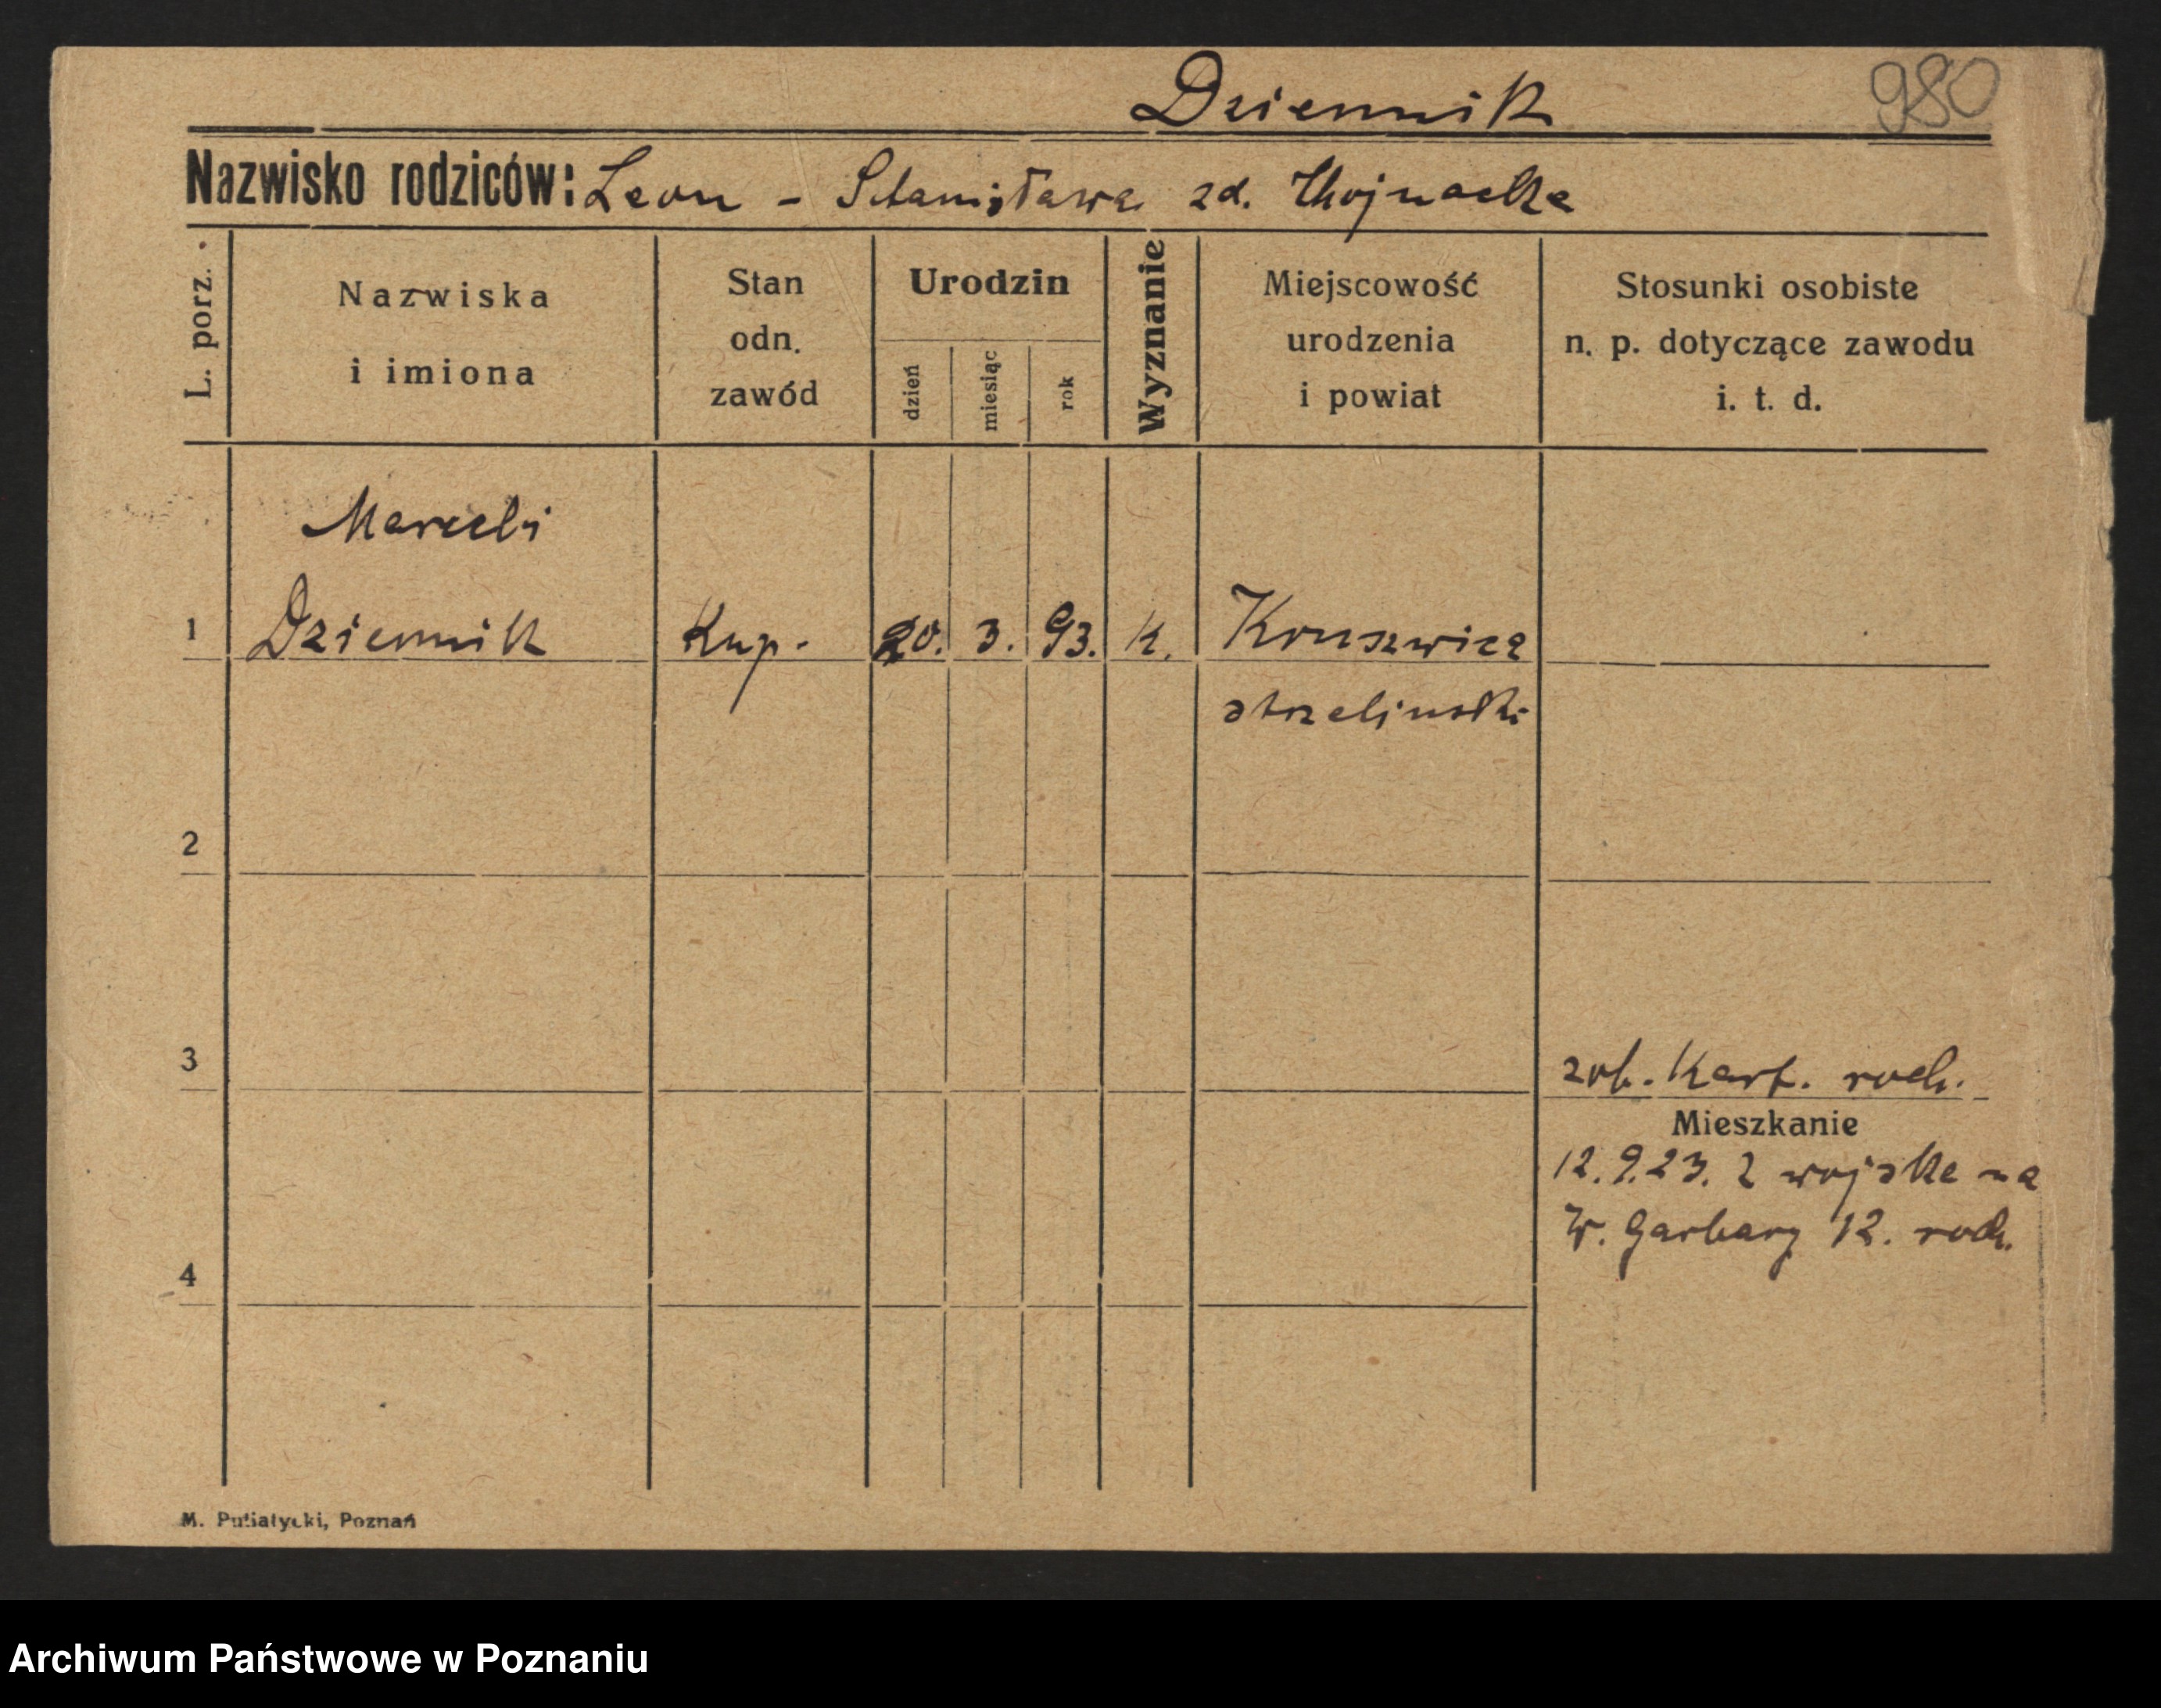 Dziennik
980
Nazwisko rodziców: Leon - Stanisława zd. Chojnacka
L. porz.
Nazwiska
i imiona
Stan
odn.
zawód
Urodzin
dzień
miesiąc
rok
Wyznanie
Miejscowość
urodzenia
i powiat
Stosunki osobiste
n. p. dotyczące zawodu
i. t. d.
Marceli
1 Dziennik Kup. 20. 3. 93. k. Kruszwica
strzeliński
2
3
zob. Kart. rodz.
Mieszkanie
12.9.23. z wojska na
W. Garbary 12. rodz.
4
M. Putiatycki, Poznań
Archiwum Państwowe w Poznaniu